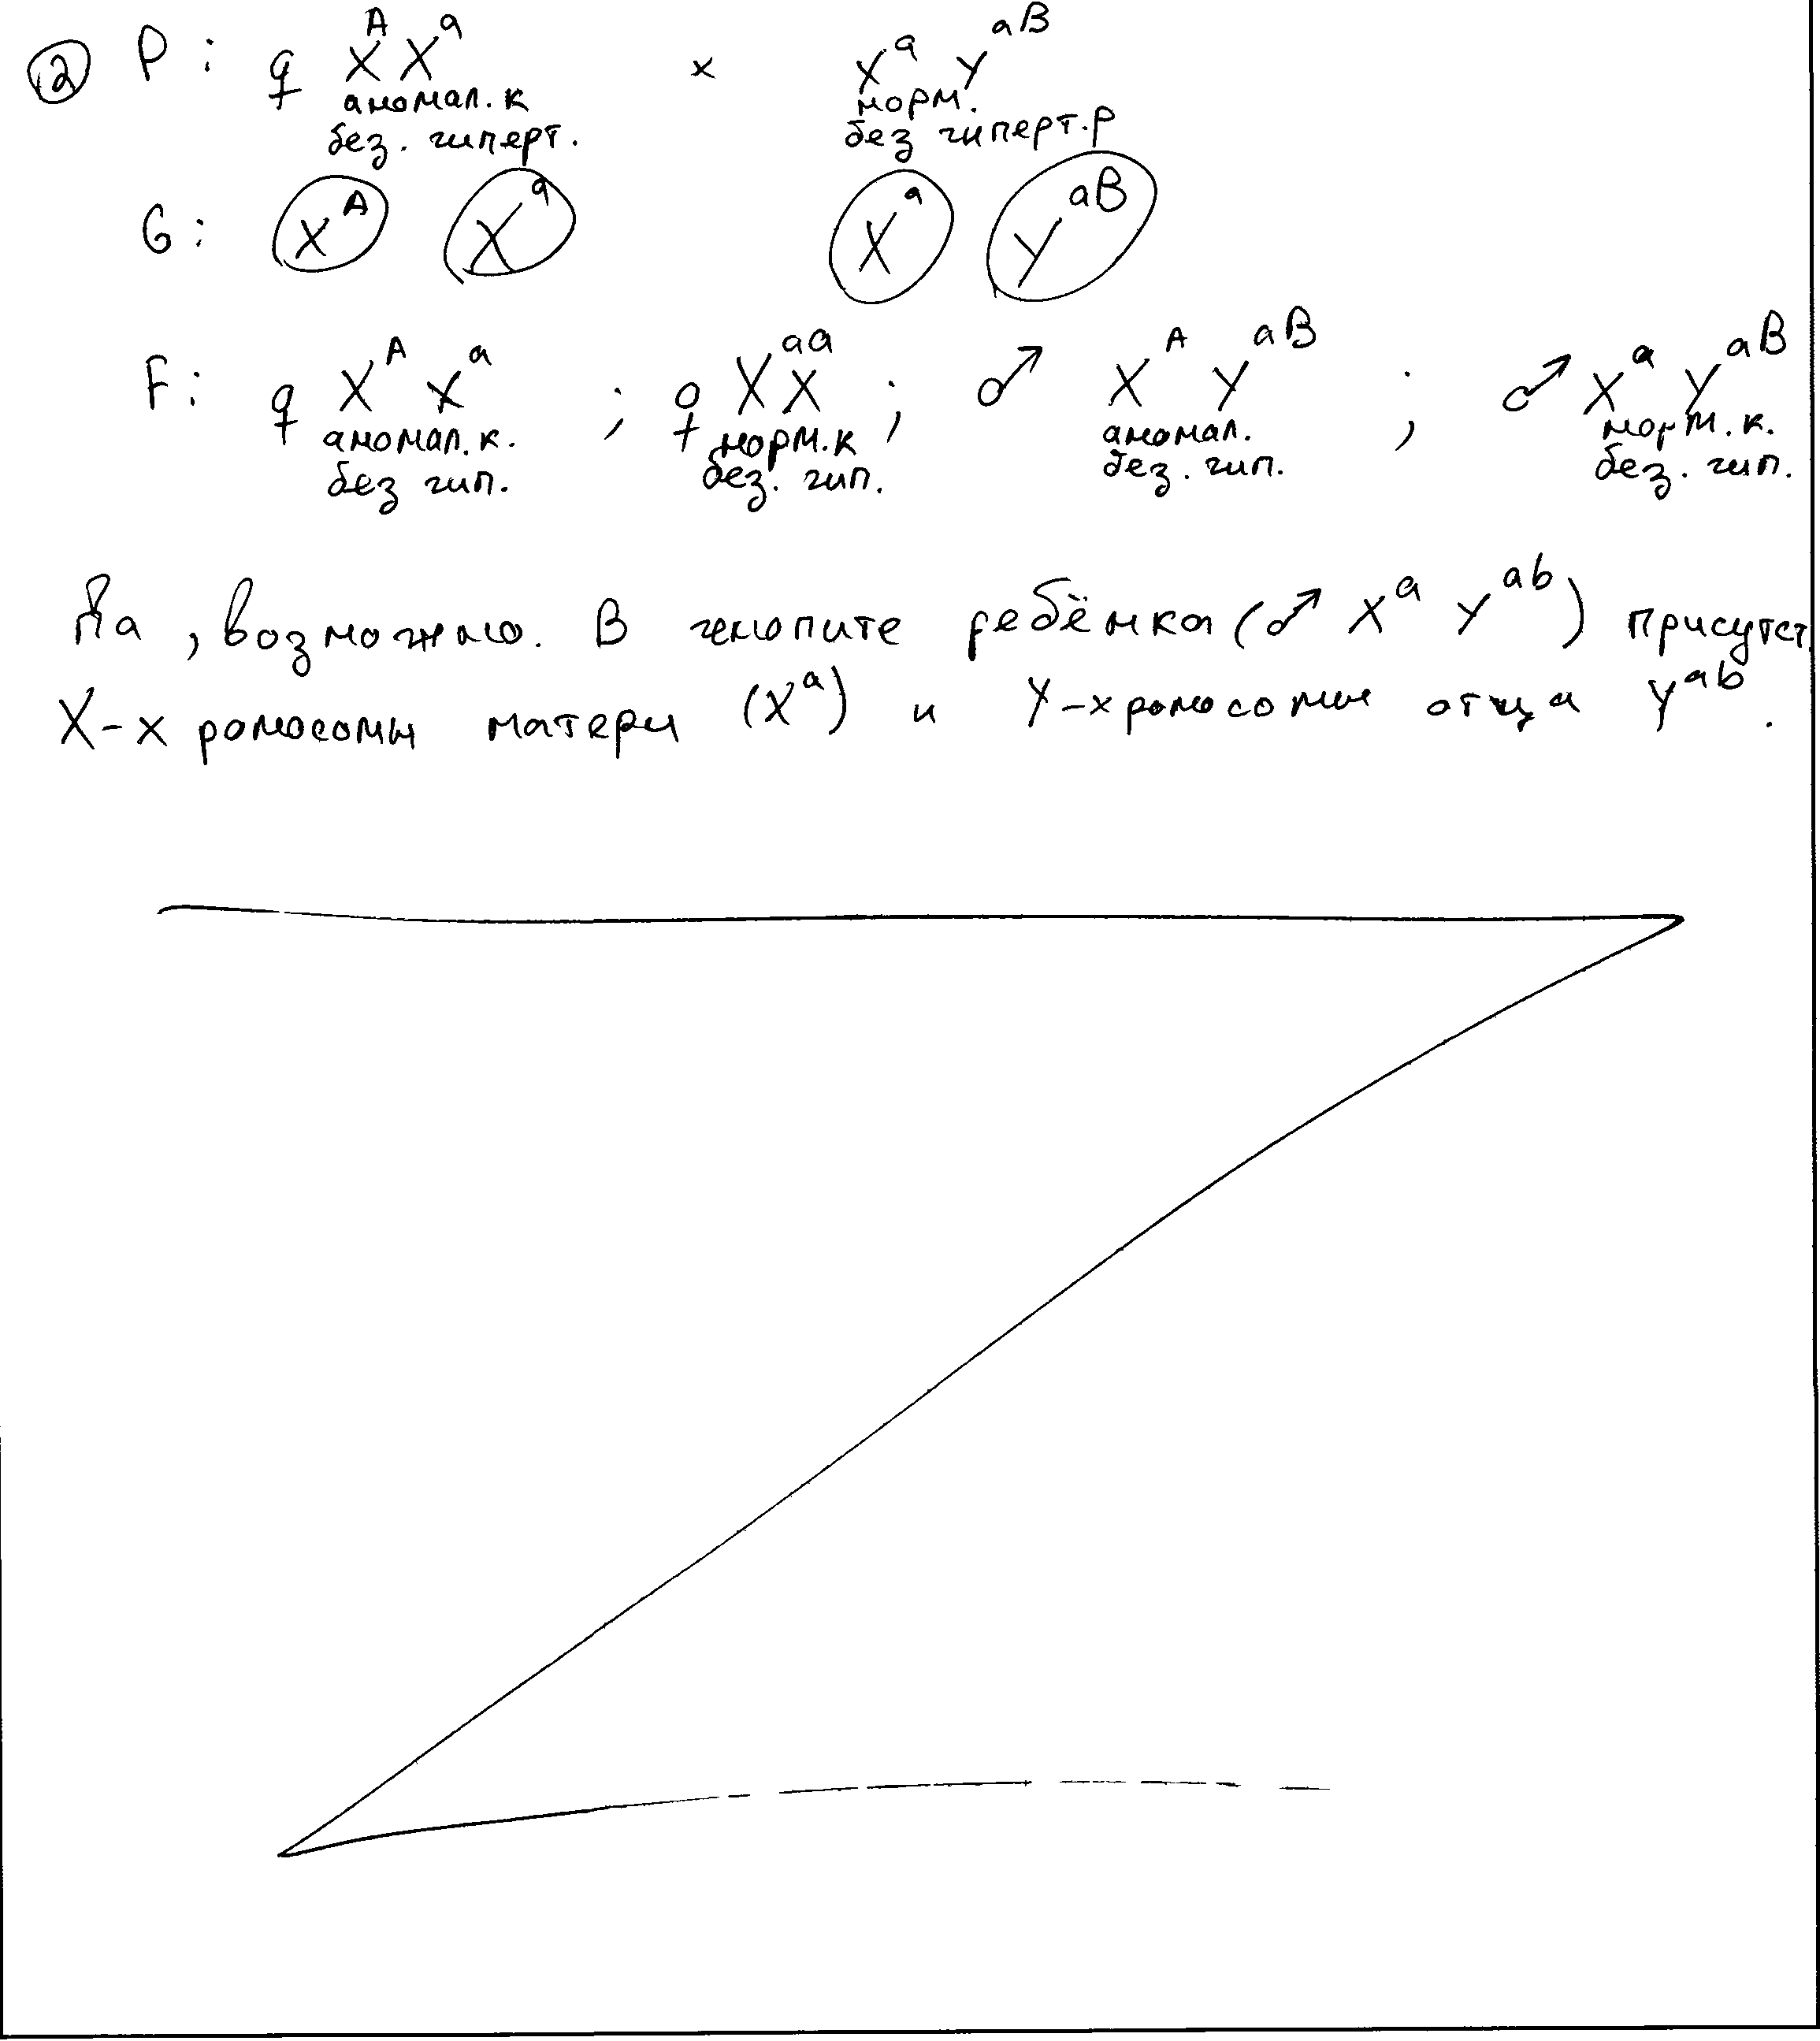 ② P: ♀ X^A X^a × X^a Y^aB
аномал. к норм.
без. гиперт. без гиперт.р
G: X^A X^a X^a Y^aB
F: ♀ X^A X^a ; ♀ XX^aa ; ♂ X^A Y^aB ; ♂ X^a Y^aB
аномал. к. норм. к аномал. норм. к.
без гип. без. гип. без. гип. без. гип.
Да, возможно. В генопите ребёнка (♂ X^a Y^ab) присутст.
X-хромосомы матери (X^a) и Y-хромосомы отца Y^ab.